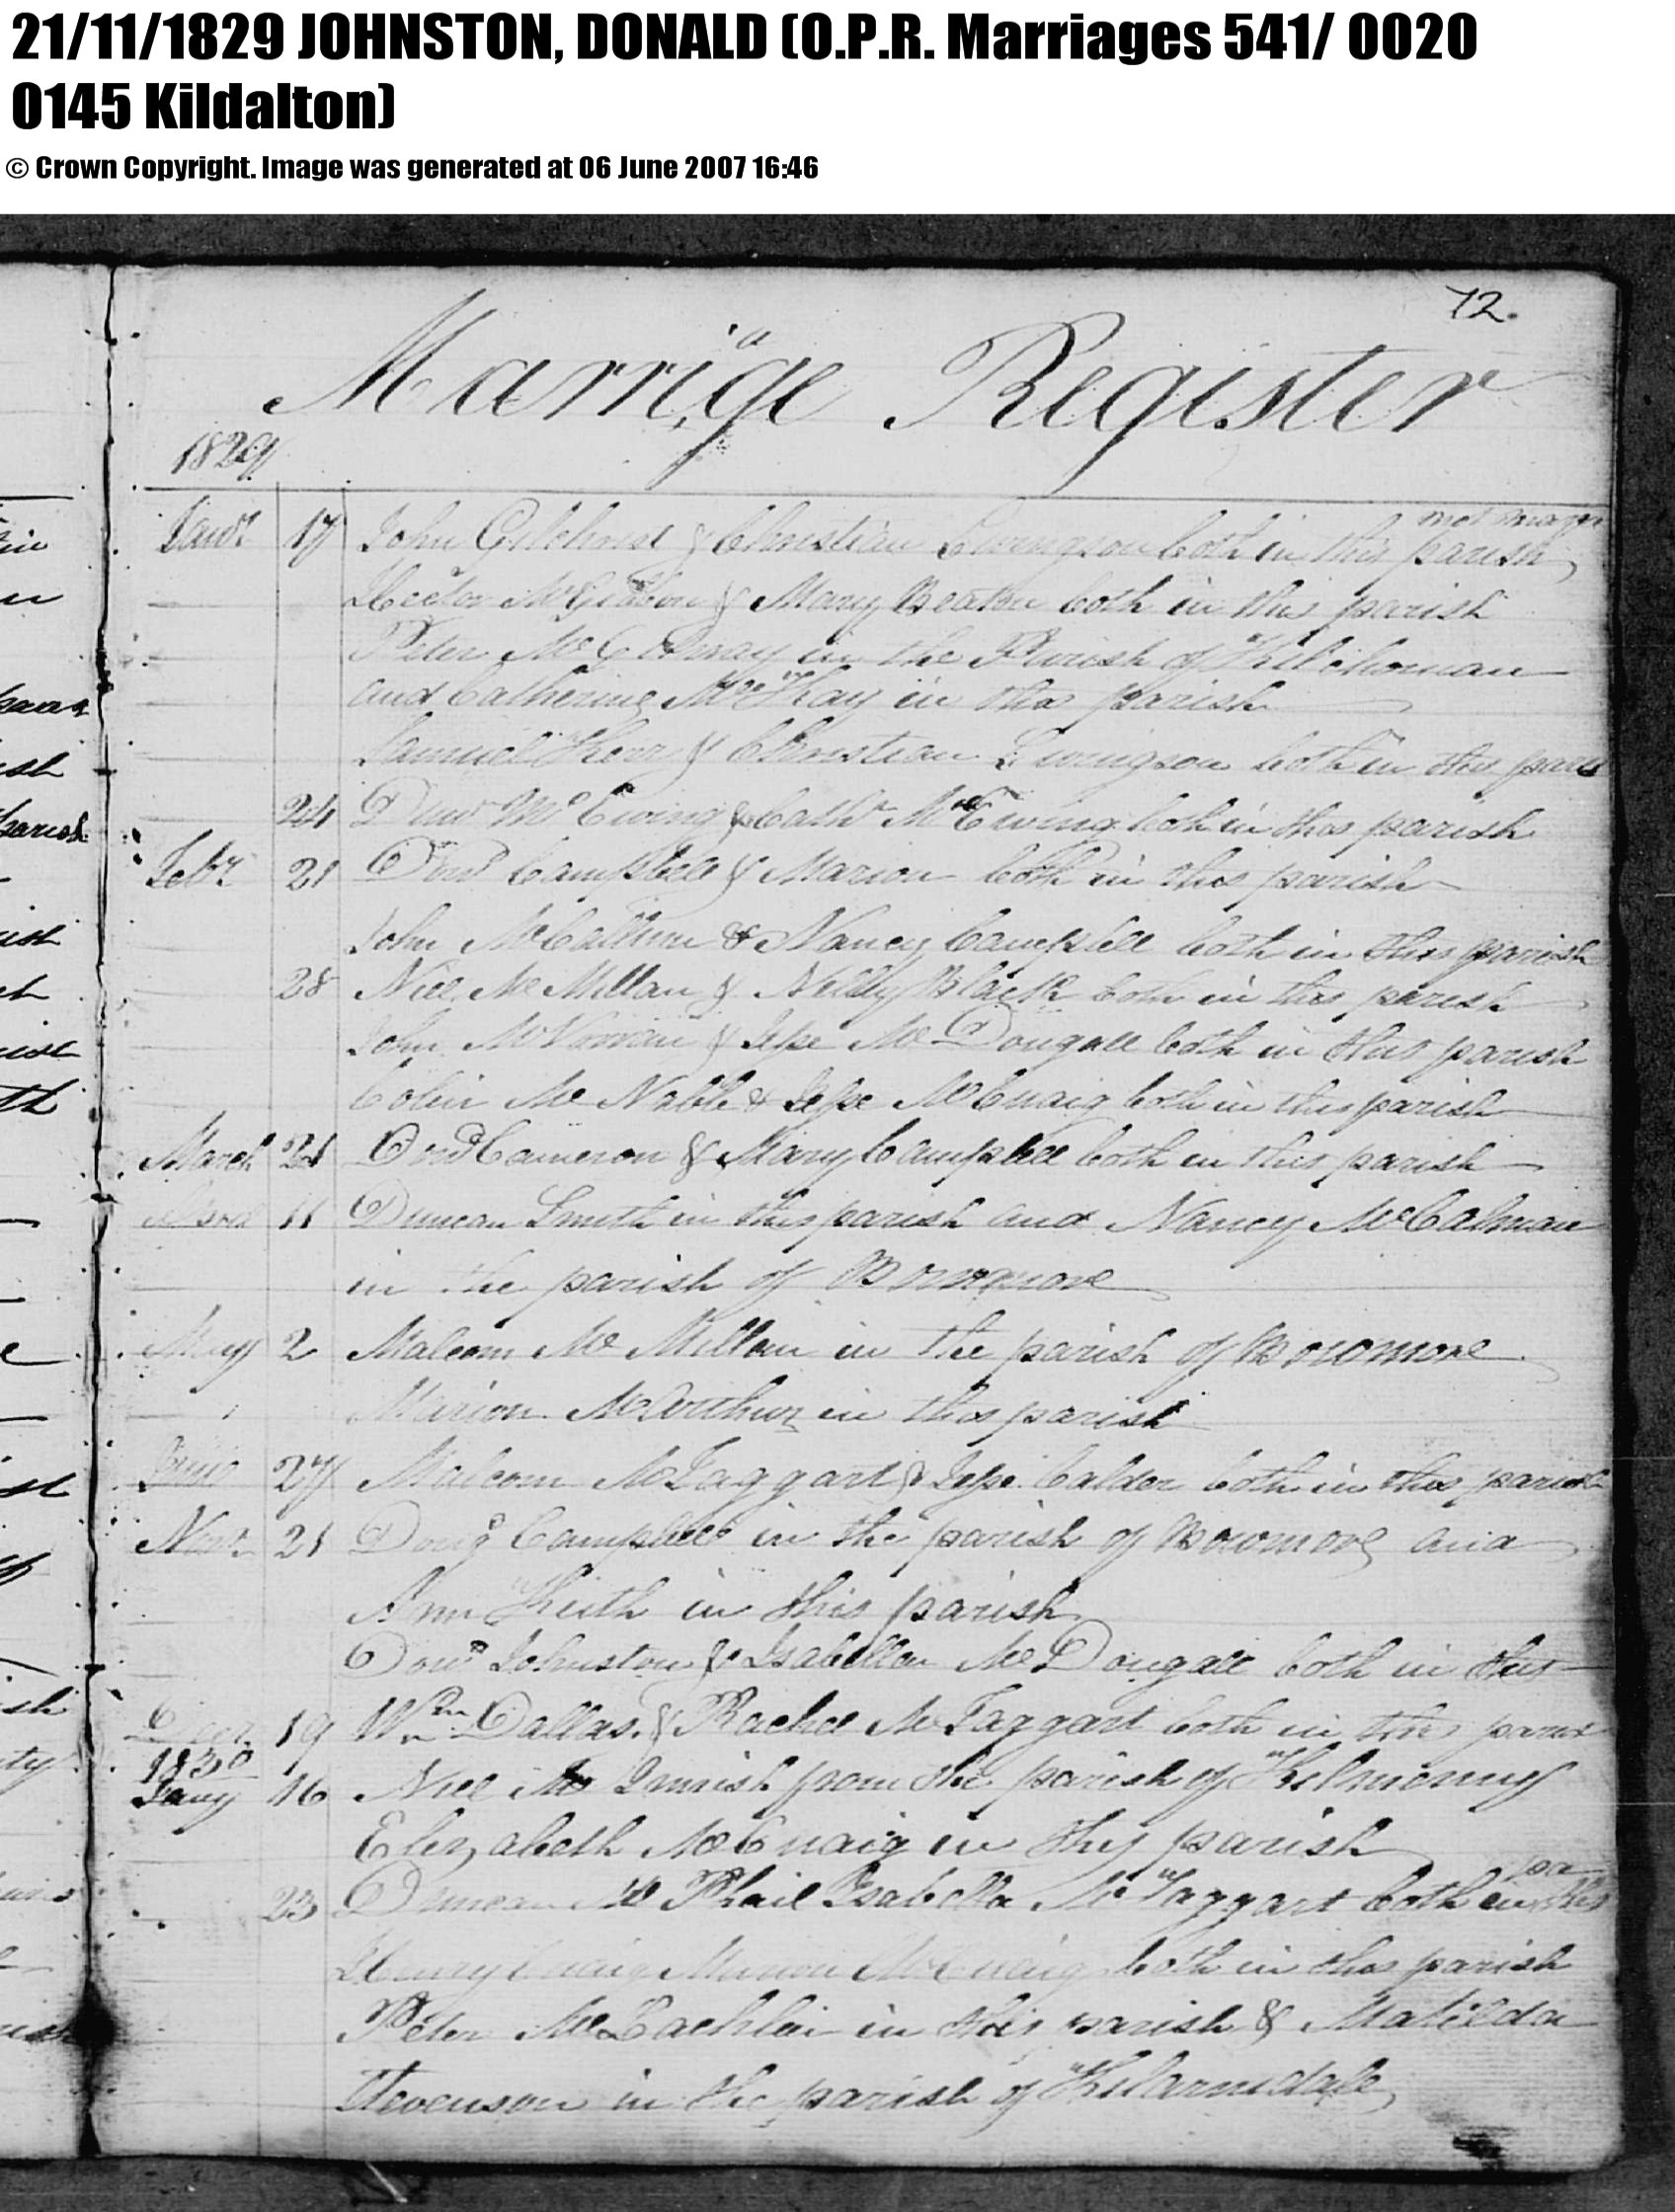 21/11/1829 JOHNSTON, DONALD (O.P.R. Marriages 541/ 0020
0145 Kildalton)
© Crown Copyright. Image was generated at 06 June 2007 16:46
72.
Marriage Register
1829
17 John Gilchrist & Christian both in this parish
Hector McGibbon & Mary Beaton both in this parish
Peter in the Parish of Kilchoman
and Catherine McKay in this parish
Samuel Kerr & Christian both in this
24 McEwing & Cathr McEwing both in this parish
Febr 21 Dond Campbell & Marion both in this parish
John McCallum & Nancy Campbell both in this parish
28 Niel McMillan & Nelly Black both in this parish
John & Jepe McDougall both in this parish
Colin McNabb & Jepe McCuaig both in this parish
March 21 Dond Cameron & Mary Campbell both in this parish
11 Duncan Smith in this parish and Nancy McCalman
in the parish of Bowmore
May 2 Malcom McMillan in the parish of Bowmore
Marion McArthur in this parish
June 27 Malcom McTaggart & Jepe Calder both in this parish
Novr 21 Doug Campbell in the parish of Bowmore and
Ann Keith in this parish
Dond Johnston & Isabella McDougall both in this
Decr 19 Wm Dallas & Rachel McTaggart both in this
1830
Jany 16 Niel from the parish of Kilmenny
Elizabeth McCuaig in this parish
pa
23 Duncan McPhail Isabella McTaggart both in this
both in this parish
Peter McLachlan in this parish & Matilda
Stevenson in the parish of